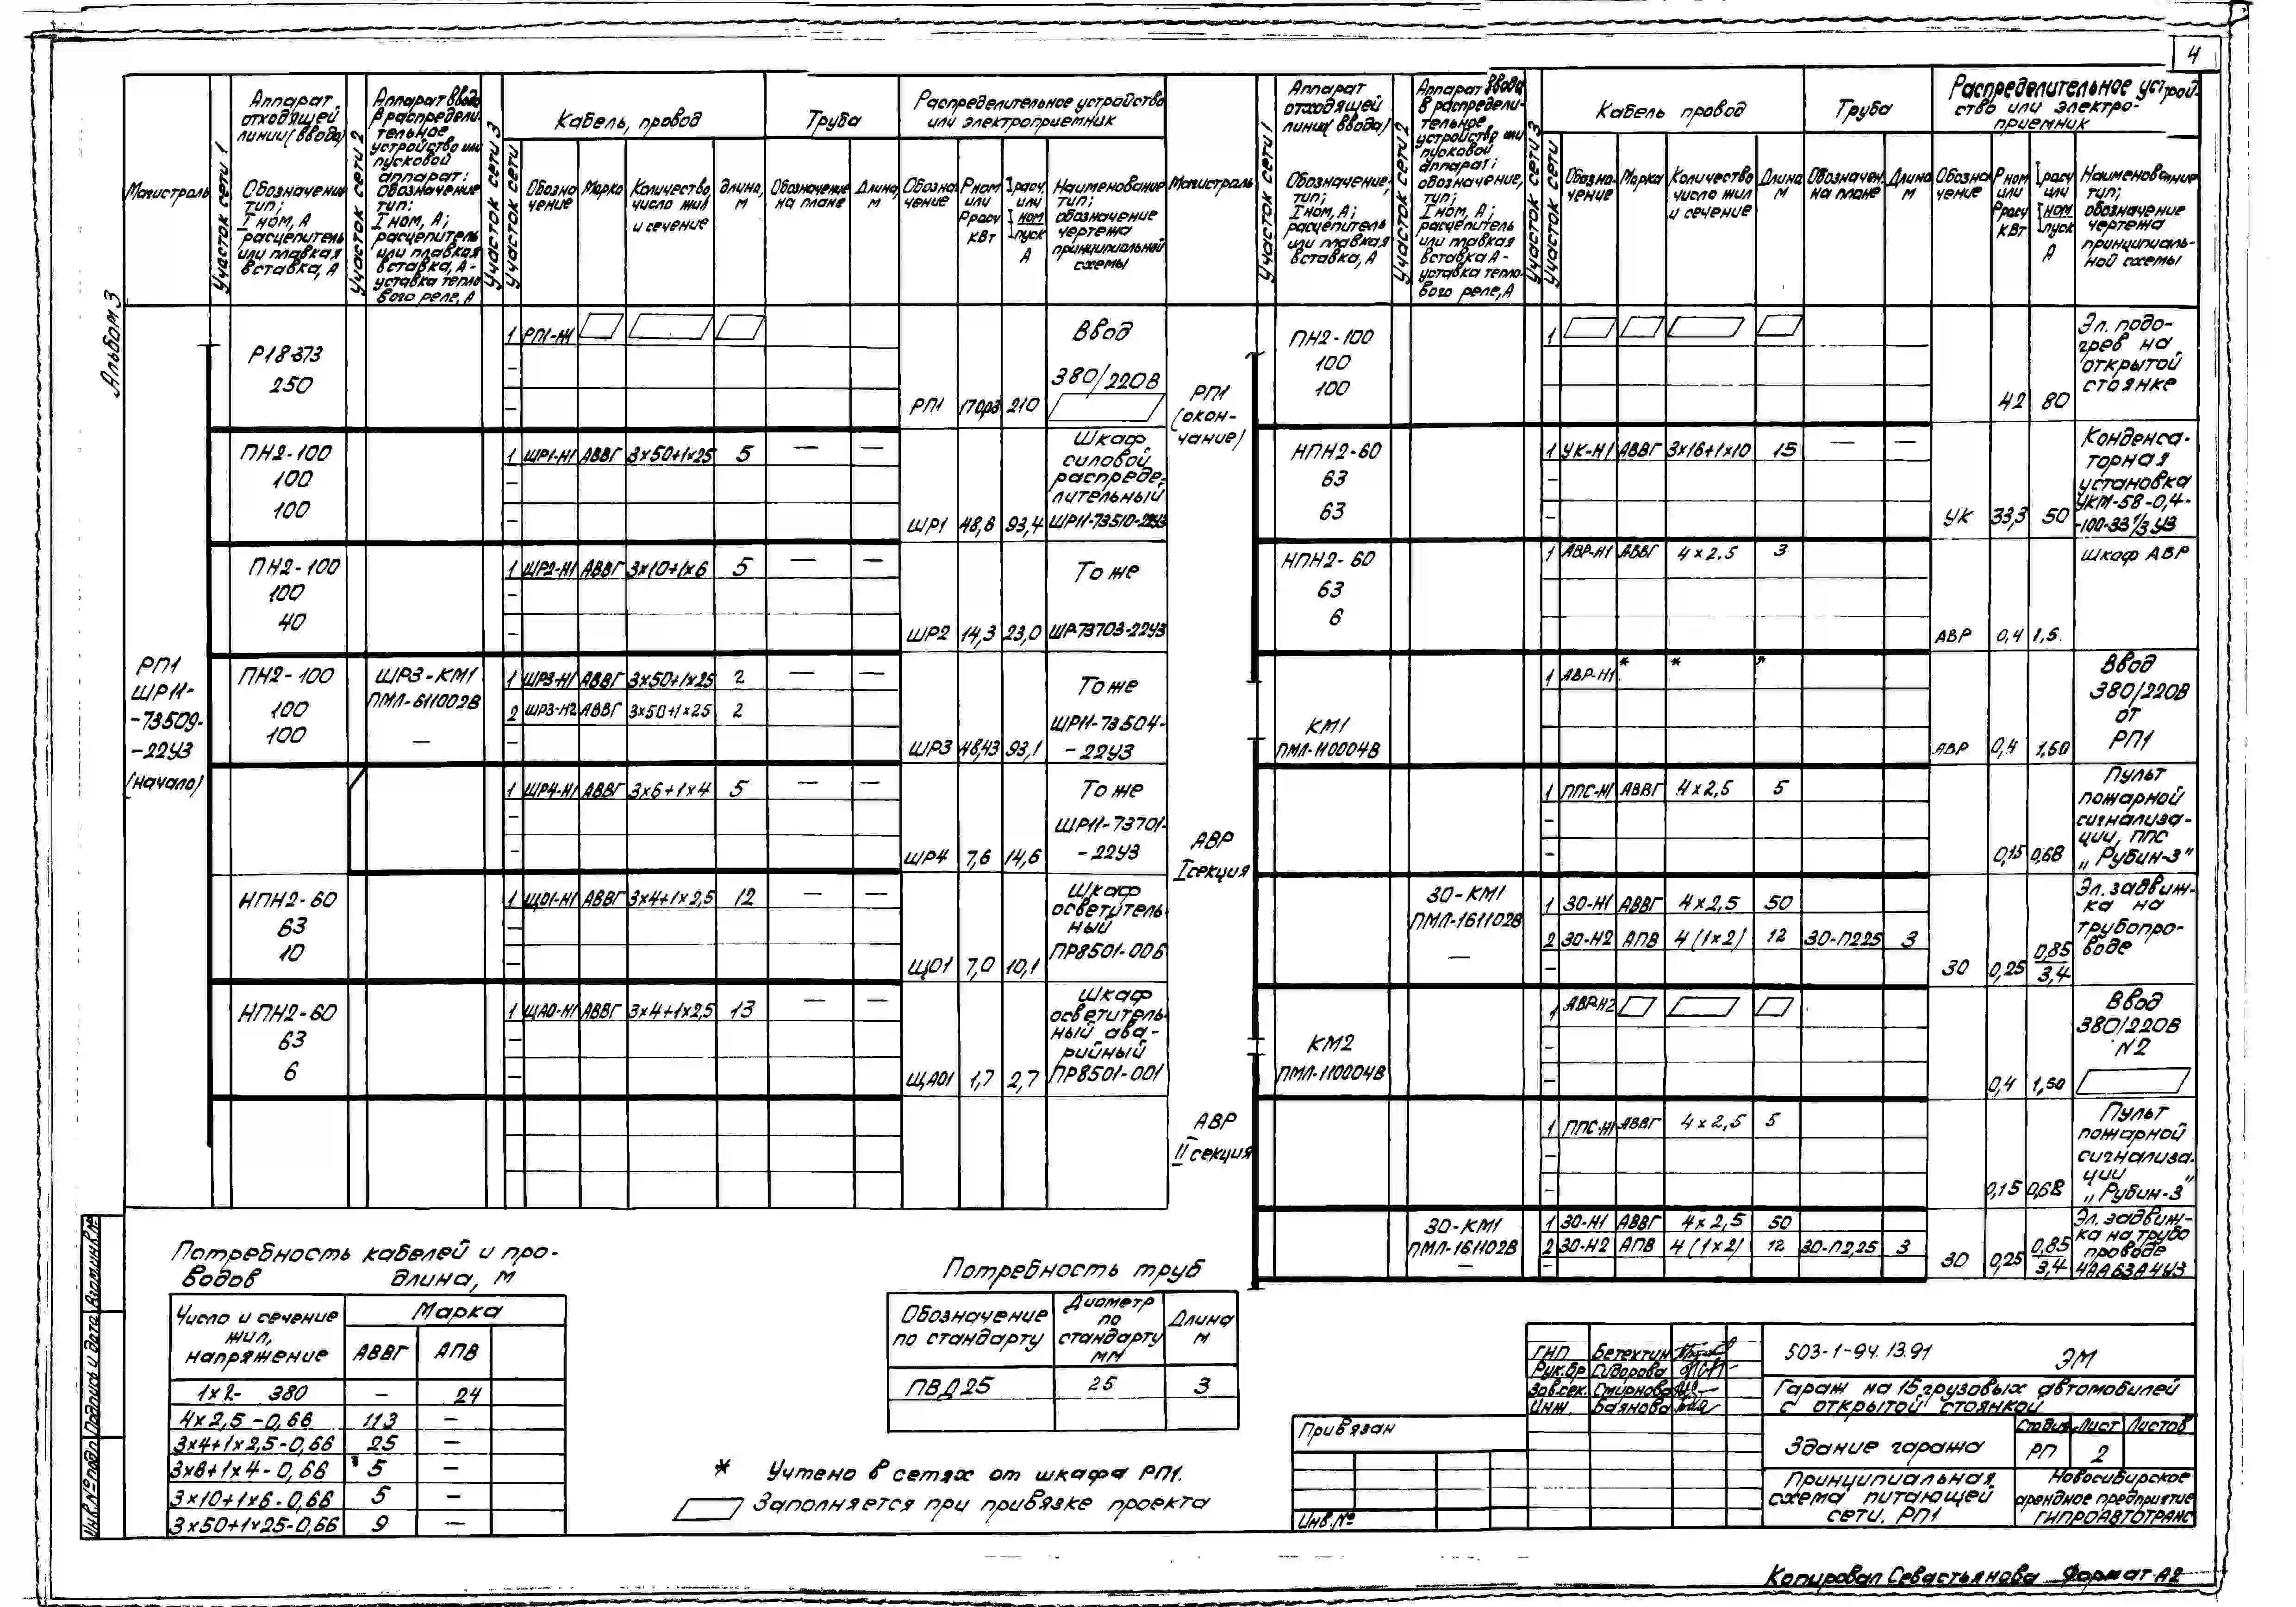 4
Альбом 3
Магистраль
Участок сети 1
Аппарат отходящей линии (ввода)
Обозначение тип; Iном, А расцепитель или плавкая вставка, А
Участок сети 2
Аппарат ввода в распределительное устройство или пусковой аппарат: Обозначение тип: Iном, А; расцепитель или плавкая вставка, А - уставка теплового реле, А
Участок сети 3
Участок сети
Кабель, провод
Обозначение
Марка
Количество, число жил и сечение
Длина, м
Труба
Обозначение на плане
Длина, м
Распределительное устройство или электроприемник
Обозначение
Рном или Ррасч кВт
Iрасч. или Iном Iпуск А
Наименование тип; обозначение чертежа принципиальной схемы
РП1 ШР11- -73509- -22У3 (начало)
Р18-373
250
1 РП1-Н1
РП1 210
Ввод
380/220В
ПН2-100
100
100
1 ШР1-Н1 АВВГ 3×50+1×25 5 — —
ШР1 48,8 93,4
Шкаф силовой распределительный ШР11-73510-22У3
ПН2-100
100
40
1 ШР2-Н1 АВВГ 3×10+1×6 5 — —
ШР2 14,3 23,0
То же
ШР-73703-22У3
ПН2-100
100
100
ШР3-КМ1
ПМЛ-611002В
—
1 ШР3-Н1 АВВГ 3×50+1×25 2 — —
2 ШР3-Н2 АВВГ 3×50+1×25 2
ШР3 48,43 93,1
То же
ШР11-73504-
-22У3
1 ШР4-Н1 АВВГ 3×6+1×4 5 — —
ШР4 7,6 14,6
То же
ШР11-73701-
-22У3
НПН2-60
63
10
1 ЩО1-Н1 АВВГ 3×4+1×2,5 12 — —
ЩО1 7,0 10,1
Шкаф осветительный
ПР8501-006
НПН2-60
63
6
1 ЩАО-Н1 АВВГ 3×4+1×2,5 13 — —
ЩАО1 1,7 2,7
Шкаф осветительный аварийный
ПР8501-001
Магистраль
Участок сети 1
Аппарат отходящей линии (ввода)
Обозначение, тип; Iном, А; расцепитель или плавкая вставка, А
Участок сети 2
Аппарат ввода в распределительное устройство или пусковой аппарат; обозначение, тип; Iном, А; расцепитель или плавкая вставка А - уставка теплового реле, А
Участок сети 3
Участок сети
Кабель провод
Обозначение
Марка
Количество число жил и сечение
Длина м
Труба
Обозначен. на плане
Длина, м
Распределительное устройство или электроприемник
Обозначение
Рном или Ррасч кВт
Iрасч или Iном Iпуск А
Наименование тип; обозначение чертежа принципиальной схемы
РП1 (окончание)
ПН2-100
100
100
1
42 80
Эл. подогрев на открытой стоянке
НПН2-60
63
63
1 УК-Н1 АВВГ 3×16+1×10 15 — —
УК 33,3 50
Конденсаторная установка УКМ-58-0,4-
-100-33 1/3 У3
НПН2-60
63
6
1 АВР-Н1 АВВГ 4×2.5 3
АВР 0,4 1,5.
Шкаф АВР
АВР I секция
КМ1
ПМЛ-110004В
1 АВР-Н1 * * *
АВР 0,4 1,50
Ввод
380/220В
от
РП1
1 ППС-Н1 АВВГ 4×2,5 5
0,15 0,68
Пульт пожарной сигнализации, ППС „Рубин-3"
30-КМ1
ПМЛ-161102В
—
1 30-Н1 АВВГ 4×2,5 50
2 30-Н2 АПВ 4(1×2) 12 30-П225 3
30 0,25 0,85/3,4
Эл. задвижка на трубопроводе
АВР II секция
КМ2
ПМЛ-110004В
1 АВР-Н2
0,4 1,50
Ввод
380/220В
N2
1 ППС-Н1 АВВГ 4×2,5 5
0,15 0,68
Пульт пожарной сигнализации „Рубин-3"
30-КМ1
ПМЛ-161102В
—
1 30-Н1 АВВГ 4×2,5 50
2 30-Н2 АПВ 4(1×2) 12 30-П2,25 3
30 0,25 0,85/3,4
Эл. задвижка на трубопроводе 4АА63А4У3
Потребность кабелей и проводов длина, м
Число и сечение жил, напряжение
Марка
АВВГ АПВ
1×2- 380 — 24
4×2,5-0,66 113 —
3×4+1×2,5-0,66 25 —
3×6+1×4-0,66 5 —
3×10+1×6-0,66 5 —
3×50+1×25-0,66 9 —
Потребность труб
Обозначение по стандарту
Диаметр по стандарту мм
Длина м
ПВД25 25 3
* Учтено в сетях от шкафа РП1.
Заполняется при привязке проекта
Привязан
Инв.№
ГИП Бетехтин
Рук.бр Сидорова
Зав.сек. Смирнова
Инж. Баянова
503-1-94.13.91 ЭМ
Гараж на 15 грузовых автомобилей с открытой стоянкой
Здание гаража
Стадия Лист Листов
РП 2
Принципиальная схема питающей сети. РП1
Новосибирское арендное предприятие ГИПРОАВТОТРАНС
Инв.№подл Подпись и дата Взам.инв.№
Копировал Севастьянова Формат А2